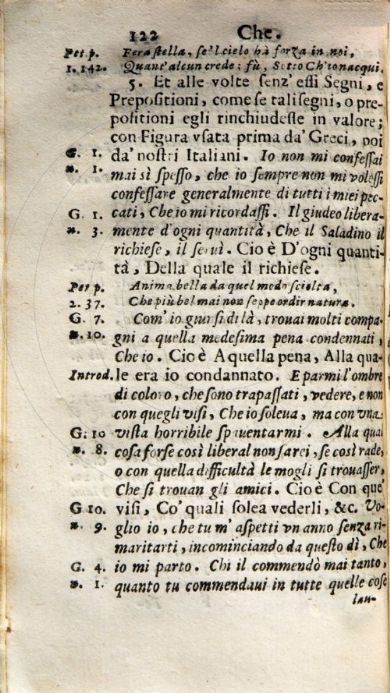 122 Che.
Pet p. Fera stella, se'l cielo hà forza in noi,
1. 142. Quant'alcun crede: fù, Sotto Ch'io nacqui.
5. Et alle volte senz'essi Segni, e
Prepositioni, come se tali segni, o pre-
positioni egli rinchiudesse in valore;
con Figura vsata prima da' Greci, poi
G. 1. da' nostri Italiani. Io non mi confessai
n. 1. mai sì spesso, che io sempre non mi volessi
confessare generalmente di tutti i miei pec-
G. 1. cati, Che io mi ricordassi. Il giudeo libera-
n. 3. mente d'ogni quantità, Che il Saladino il
richiese, il seruì. Cioè D'ogni quanti-
tà, Della quale il richiese.
Pet p. Anima bella da quel modo sciolta,
2. 37. Che più bel mai non seppe ordir natura.
G. 7. Com'io giunsi di là, trouai molti compa-
n. 10. gni a quella medesima pena condennati,
Che io. Cioè A quella pena, Alla qua-
Introd. le era io condannato. E parmi l'ombre
di coloro, che sono trapassati, vedere, e non
con quegli visi, Che io soleua, ma con vna
G. 10 vista horribile spauentarmi. Alla qual
n. 8. cosa forse così liberal non sarei, se così rade,
o con quella difficultà le mogli si trouasser,
Che si trouan gli amici. Cioè Con que'
G 10. visi, Co' quali solea vederli, &c. Vo-
n. 9. glio io, che tu m'aspetti vn anno senza ri-
maritarti, incominciando da questo dì, Che
G. 4. io mi parto. Chi il commendò mai tanto,
n. 1. quanto tu commendaui in tutte quelle cose
lau-